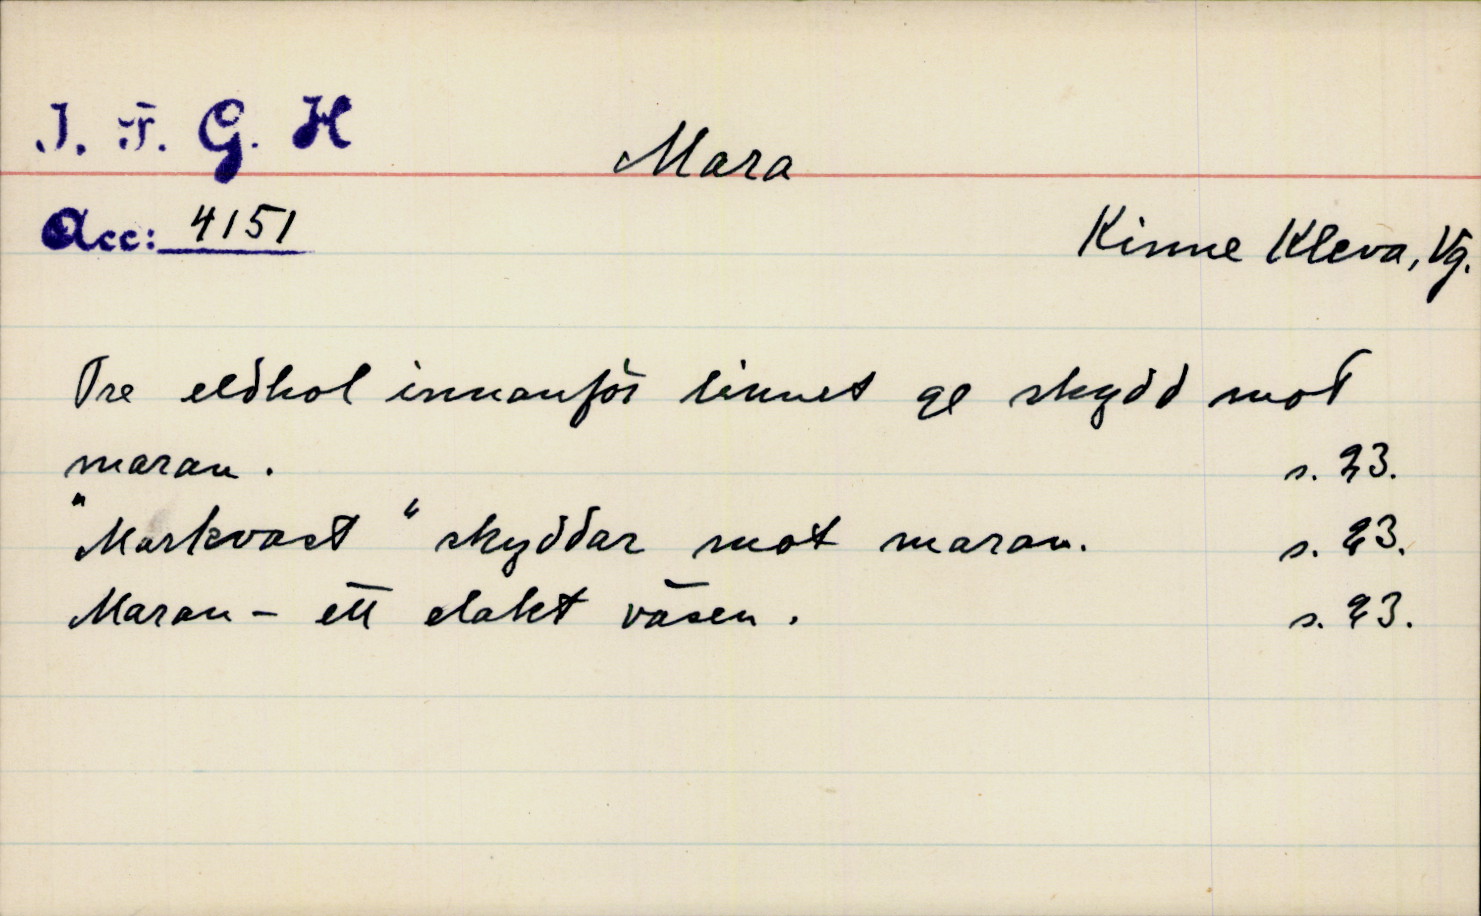 I. F. G. H
Mara
Acc: 4151
Kinne Kleva, Vg.
Tre eldkol innanför linnet ge skydd mot
maran. s. 23.
"Markvast" skyddar mot maran. s. 23.
Maran - ett elakt väsen. s. 23.